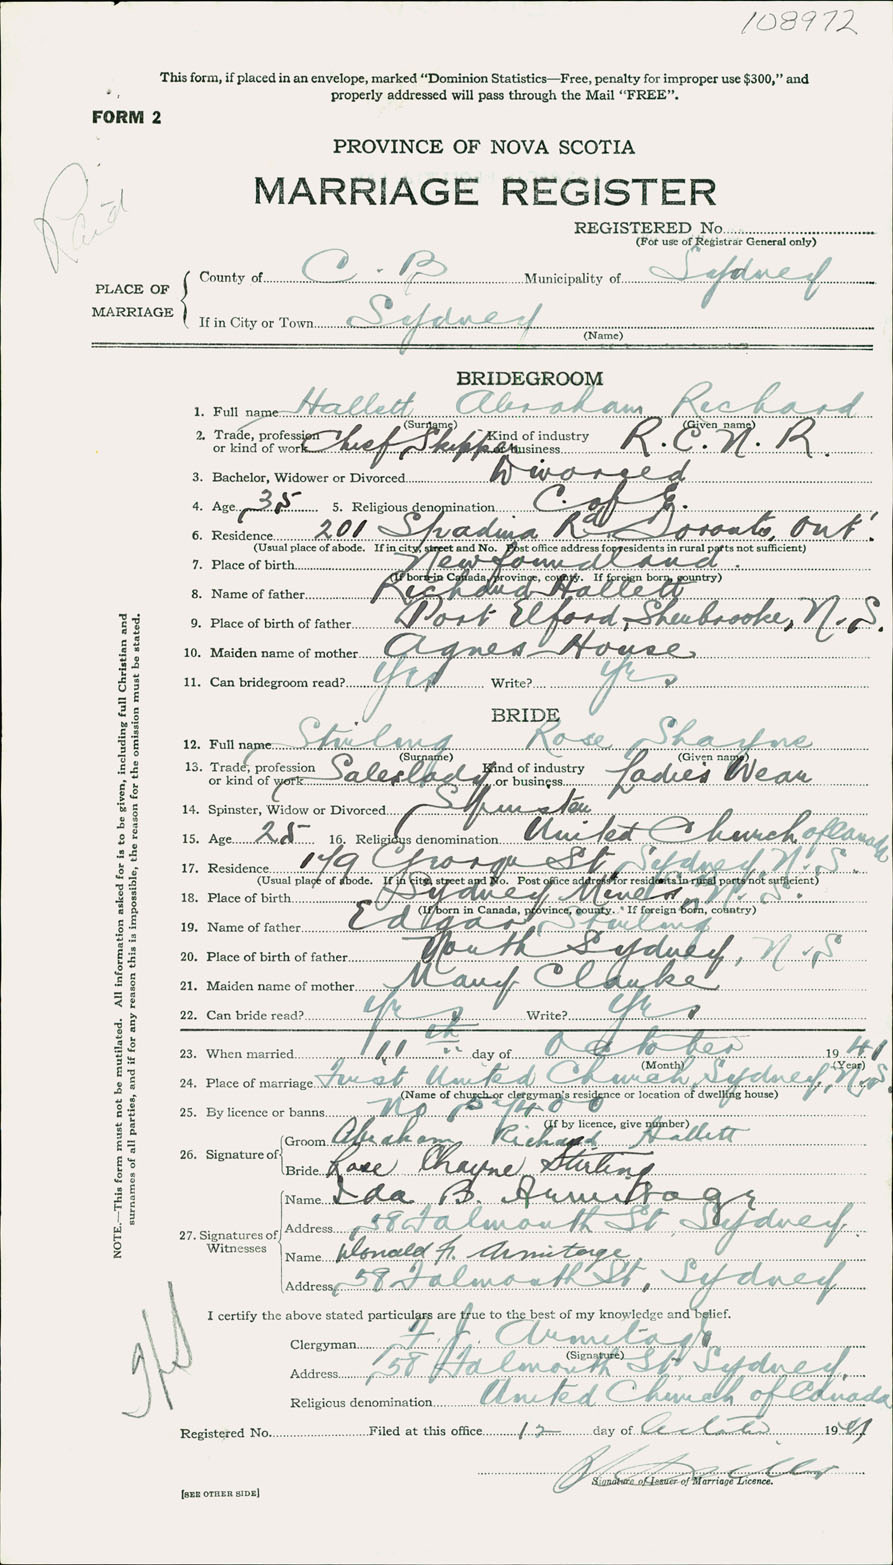 108972
This form, if placed in an envelope, marked "Dominion Statistics—Free, penalty for improper use $300," and
properly addressed will pass through the Mail "FREE".
FORM 2
PROVINCE OF NOVA SCOTIA
MARRIAGE REGISTER
Paid
REGISTERED No.
(For use of Registrar General only)
PLACE OF MARRIAGE
County of C. B Municipality of Sydney
If in City or Town Sydney
(Name)
BRIDEGROOM
1. Full name Hallett Abraham Richard
(Surname) (Given name)
2. Trade, profession or kind of work Chief Skipper Kind of industry or business R.C.N.R.
3. Bachelor, Widower or Divorced Divorced
4. Age 35 5. Religious denomination C. of E.
6. Residence 201 Spadina Rd. Toronto, Ont.
(Usual place of abode. If in city, street and No. Post office address for residents in rural parts not sufficient)
7. Place of birth Newfoundland.
(If born in Canada, province, county. If foreign born, country)
8. Name of father Richard Hallett
9. Place of birth of father Port Elford, Sherbrooke, N.S.
10. Maiden name of mother Agnes House
11. Can bridegroom read? Yes Write? Yes
BRIDE
12. Full name Stirling Rose Shayne
(Surname) (Given name)
13. Trade, profession or kind of work Saleslady Kind of industry or business Ladies Wear
14. Spinster, Widow or Divorced Spinster
15. Age 25 16. Religious denomination United Church of Canada
17. Residence 179 George St. Sydney N.S.
(Usual place of abode. If in city, street and No. Post office address for residents in rural parts not sufficient)
18. Place of birth Sydney Mines, N.S.
(If born in Canada, province, county. If foreign born, country)
19. Name of father Edgar Stirling
20. Place of birth of father North Sydney, N.S
21. Maiden name of mother Mary Clarke
22. Can bride read? Yes Write? Yes
23. When married 11th day of October 1941
(Month) (Year)
24. Place of marriage First United Church, Sydney, N.S.
(Name of church or clergyman's residence or location of dwelling house)
25. By licence or banns No
(If by licence, give number)
26. Signature of
Groom Abraham Richard Hallett
Bride Rose Chayne Stirling
27. Signatures of Witnesses
Name Ida B. Armitage
Address 58 Falmouth St Sydney.
Name Donald F. Armitage
Address 58 Falmouth St, Sydney
I certify the above stated particulars are true to the best of my knowledge and belief.
Clergyman F. J. Armitage
(Signature)
Address 58 Falmouth St. Sydney
Religious denomination United Church of Canada
Registered No. Filed at this office 12 day of October 1941
Signature of Issuer of Marriage Licence.
[SEE OTHER SIDE]
NOTE.—This form must not be mutilated. All information asked for is to be given, including full Christian and
surnames of all parties, and if for any reason this is impossible, the reason for the omission must be stated.